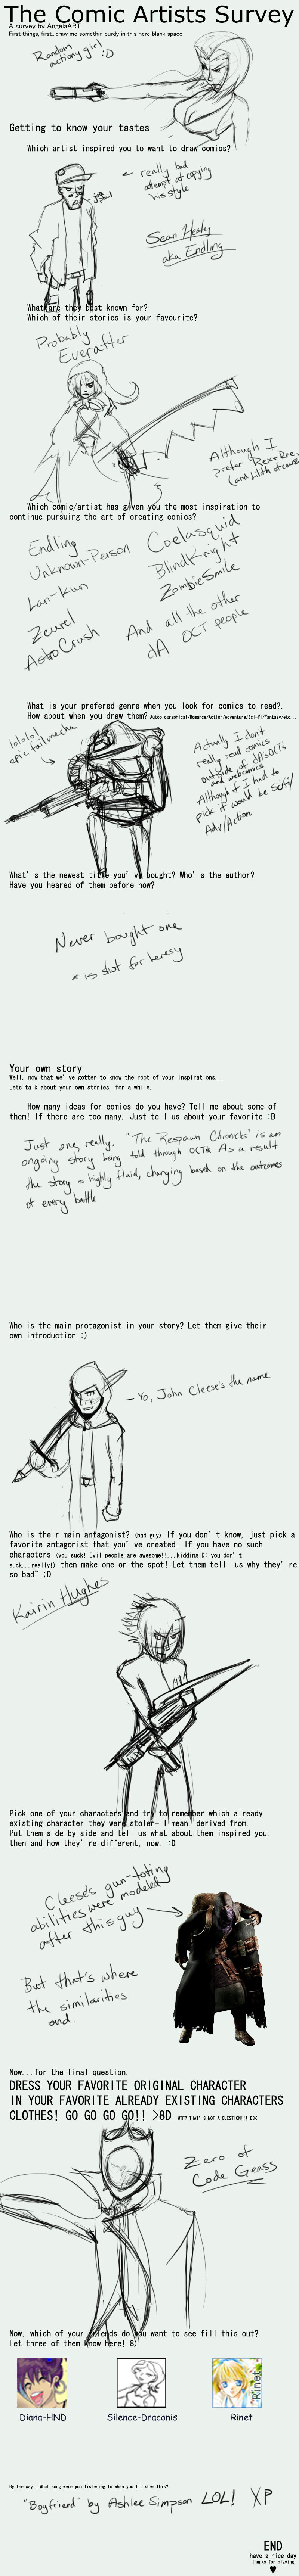 The Comic Artists Survey
A survey by AngelaART
First things, first..draw me somethin purdy in this here blank space
Random
action-y girl
:D
Getting to know your tastes
Which artist inspired you to want to draw comics?
← really bad
attempt at copying
his style
Sean Healey
aka Endling
What are they best known for?
Which of their stories is your favourite?
Probably
Everafter
Although I
prefer
Which comic/artist has given you the most inspiration to
continue pursuing the art of creating comics?
Endling
Unknown-Person
Lan-Kun
Zeurel
AstroCrush
Coelasquid
BlindKnight
ZombieSmile
And all the other
dA OCT people
What is your prefered genre when you look for comics to read?.
How about when you draw them? Autobiographical/Romance/Action/Adventure/Sci-fi/Fantasy/etc...
lololol
epic fail mecha
Actually I don't
really read comics
outside of dA OCTs
and webcomics
Although if I had to
pick it would be Scifi/
Adv/Action
What's the newest title you've bought? Who's the author?
Have you heared of them before now?
Never bought one
* is shot for heresy
Your own story
Well, now that we've gotten to know the root of your inspirations...
Lets talk about your own stories, for a while.
How many ideas for comics do you have? Tell me about some of
them! If there are too many. Just tell us about your favorite :B
Just one, really. "The Respawn Chronicles" is an
ongoing story being told through OCTs. As a result
the story is highly fluid, changing based on the outcomes
of every battle
Who is the main protagonist in your story? Let them give their
own introduction.:)
- Yo, John Cleese's the name
Who is their main antagonist? (bad guy) If you don't know, just pick a
favorite antagonist that you've created. If you have no such
characters (you suck! Evil people are awesome!!...kidding D: you don't
suck...really!) then make one on the spot! Let them tell us why they're
so bad~ ;D
Kairin Hughes
Pick one of your characters and try to remember which already
existing character they were stolen- I mean, derived from.
Put them side by side and tell us what about them inspired you,
then and how they're different, now. :D
Cleese's gun-toting
abilities were modeled
after this guy
But that's where
the similarities
end.
Now...for the final question.
DRESS YOUR FAVORITE ORIGINAL CHARACTER
IN YOUR FAVORITE ALREADY EXISTING CHARACTERS
CLOTHES! GO GO GO GO!! >8D WTF? THAT'S NOT A QUESTION!!! D8<
Zero of
Code Geass
Now, which of your friends do you want to see fill this out?
Let three of them know here! 8)
Rinet
Diana-HND
Silence-Draconis
Rinet
By the way...What song were you listening to when you finished this?
"Boyfriend" by Ashlee Simpson LOL! XP
END
have a nice day
Thanks for playing
♥